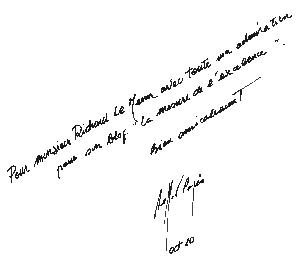 Pour monsieur Richard Le Menn avec toute mon admiration
pour son blog "La mesure de l'excellence".
Bien amicalement
oct 20